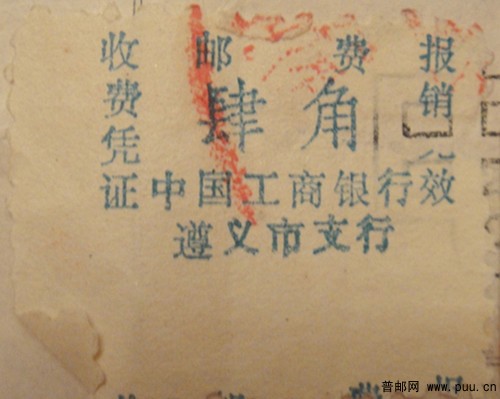 收费凭证
邮费
肆角
中国工商银行
遵义市支行
报销效
普邮网 www.puu.cn